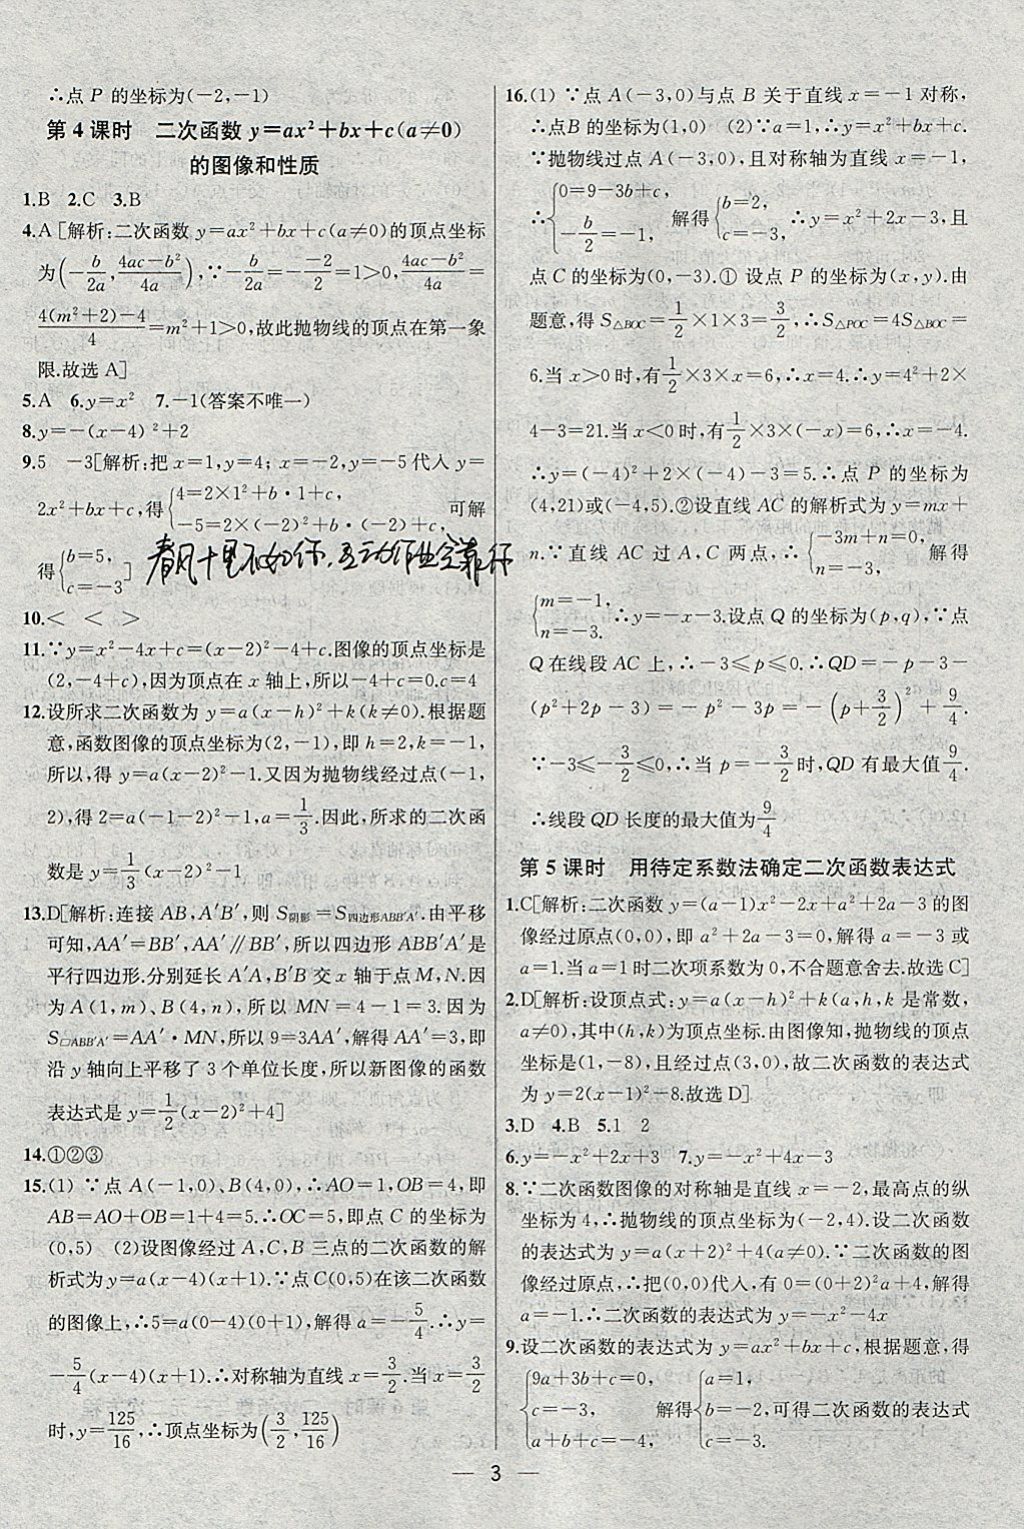 ∴点 P 的坐标为(-2,-1)
第 4 课时　二次函数 y=ax²+bx+c(a≠0)
的图像和性质
1.B　2.C　3.B
4.A[解析:二次函数 y=ax²+bx+c(a≠0)的顶点坐标
为(-b/2a, (4ac-b²)/4a),∵-b/2a=-(-2)/2=1>0,(4ac-b²)/4a=
(4(m²+2)-4)/4=m²+1>0,故此抛物线的顶点在第一象
限.故选 A]
5.A　6.y=x²　7.-1(答案不唯一)
8.y=-(x-4)²+2
9.5　-3[解析:把 x=1,y=4; x=-2,y=-5代入 y=
2x²+bx+c,得{4=2×1²+b·1+c, -5=2×(-2)²+b·(-2)+c, 可解
得{b=5, c=-3]
春风十里不如你,互动作业全靠你
10.<　<　>
11.∵y=x²-4x+c=(x-2)²-4+c.图像的顶点坐标是
(2,-4+c),因为顶点在 x 轴上,所以-4+c=0.c=4
12.设所求二次函数为 y=a(x-h)²+k(k≠0).根据题
意,函数图像的顶点坐标为(2,-1),即 h=2,k=-1,
所以,得 y=a(x-2)²-1.又因为抛物线经过点(-1,
2),得2=a(-1-2)²-1,a=1/3.因此,所求的二次函
数是 y=1/3(x-2)²-1
13.D[解析:连接 AB,A′B′,则 S阴影=S四边形ABB′A′.由平移
可知,AA′=BB′,AA′∥BB′,所以四边形 ABB′A′是
平行四边形.分别延长 A′A,B′B 交 x 轴于点 M,N.因
为 A(1,m)、B(4,n),所以 MN=4-1=3.因为
S▱ABB′A′=AA′·MN,所以 9=3AA′,解得 AA′=3,即
沿 y 轴向上平移了 3 个单位长度,所以新图像的函数
表达式是 y=1/2(x-2)²+4]
14.①②③
15.(1) ∵点 A(-1,0)、B(4,0),∴AO=1,OB=4,即
AB=AO+OB=1+4=5.∴OC=5,即点 C 的坐标为
(0,5)　(2)设图像经过 A,C,B 三点的二次函数的解
析式为 y=a(x-4)(x+1).∵点C(0,5)在该二次函数
的图像上,∴5=a(0-4)(0+1),解得 a=-5/4.∴y=
-5/4(x-4)(x+1).∴对称轴为直线 x=3/2.当 x=3/2
时,y=125/16,∴顶点坐标为(3/2,125/16)
16.(1) ∵点A(-3,0)与点 B 关于直线 x=-1 对称,
∴点B 的坐标为(1,0)　(2)∵a=1,∴y=x²+bx+c.
∵抛物线过点 A(-3,0),且对称轴为直线 x=-1,
∴{0=9-3b+c, -b/2=-1, 解得{b=2, c=-3, ∴y=x²+2x-3,且
点 C 的坐标为(0,-3).① 设点 P 的坐标为(x,y).由
题意,得 S△BOC=1/2×1×3=3/2,∴S△POC=4S△BOC=
6.当 x>0 时,有1/2×3×x=6,∴x=4.∴y=4²+2×
4-3=21.当 x<0 时,有1/2×3×(-x)=6,∴x=-4.
∴y=(-4)²+2×(-4)-3=5.∴点 P 的坐标为
(4,21)或(-4,5).②设直线 AC 的解析式为 y=mx+
n.∵直线 AC 过 A,C 两点,∴{-3m+n=0, n=-3. 解得
{m=-1, n=-3. ∴y=-x-3.设点 Q 的坐标为(p,q),∵点
Q 在线段 AC 上,∴-3⩽p⩽0.∴QD=-p-3-
(p²+2p-3)=-p²-3p=-(p+3/2)²+9/4.
∵-3⩽-3/2⩽0,∴当 p=-3/2时,QD 有最大值9/4.
∴线段 QD 长度的最大值为9/4
第 5 课时　用待定系数法确定二次函数表达式
1.C[解析:二次函数 y=(a-1)x²-2x+a²+2a-3的图
像经过原点(0,0),即 a²+2a-3=0,解得 a=-3 或
a=1.当 a=1时二次项系数为 0,不合题意舍去.故选 C]
2.D[解析:设顶点式:y=a(x-h)²+k(a,h,k 是常数,
a≠0),其中(h,k)为顶点坐标.由图像知,抛物线的顶点
坐标是(1,-8),且经过点(3,0),故二次函数的表达式
为 y=2(x-1)²-8.故选 D]
3.D　4.B　5.1　2
6.y=-x²+2x+3　7.y=-x²+4x-3
8.∵二次函数图像的对称轴是直线 x=-2,最高点的纵
坐标为 4,∴抛物线的顶点坐标为(-2,4).设二次函数
的表达式为 y=a(x+2)²+4(a≠0).∵二次函数的图
像经过原点,∴把(0,0)代入,有 0=(0+2)²a+4,解得
a=-1.∴二次函数的表达式为 y=-x²-4x
9.设二次函数的表达式为 y=ax²+bx+c,根据题意,得
{9a+3b+c=0, c=-3, a+b+c=-4, 解得{a=1, b=-2, c=-3. 可得二次函数的表达式
3